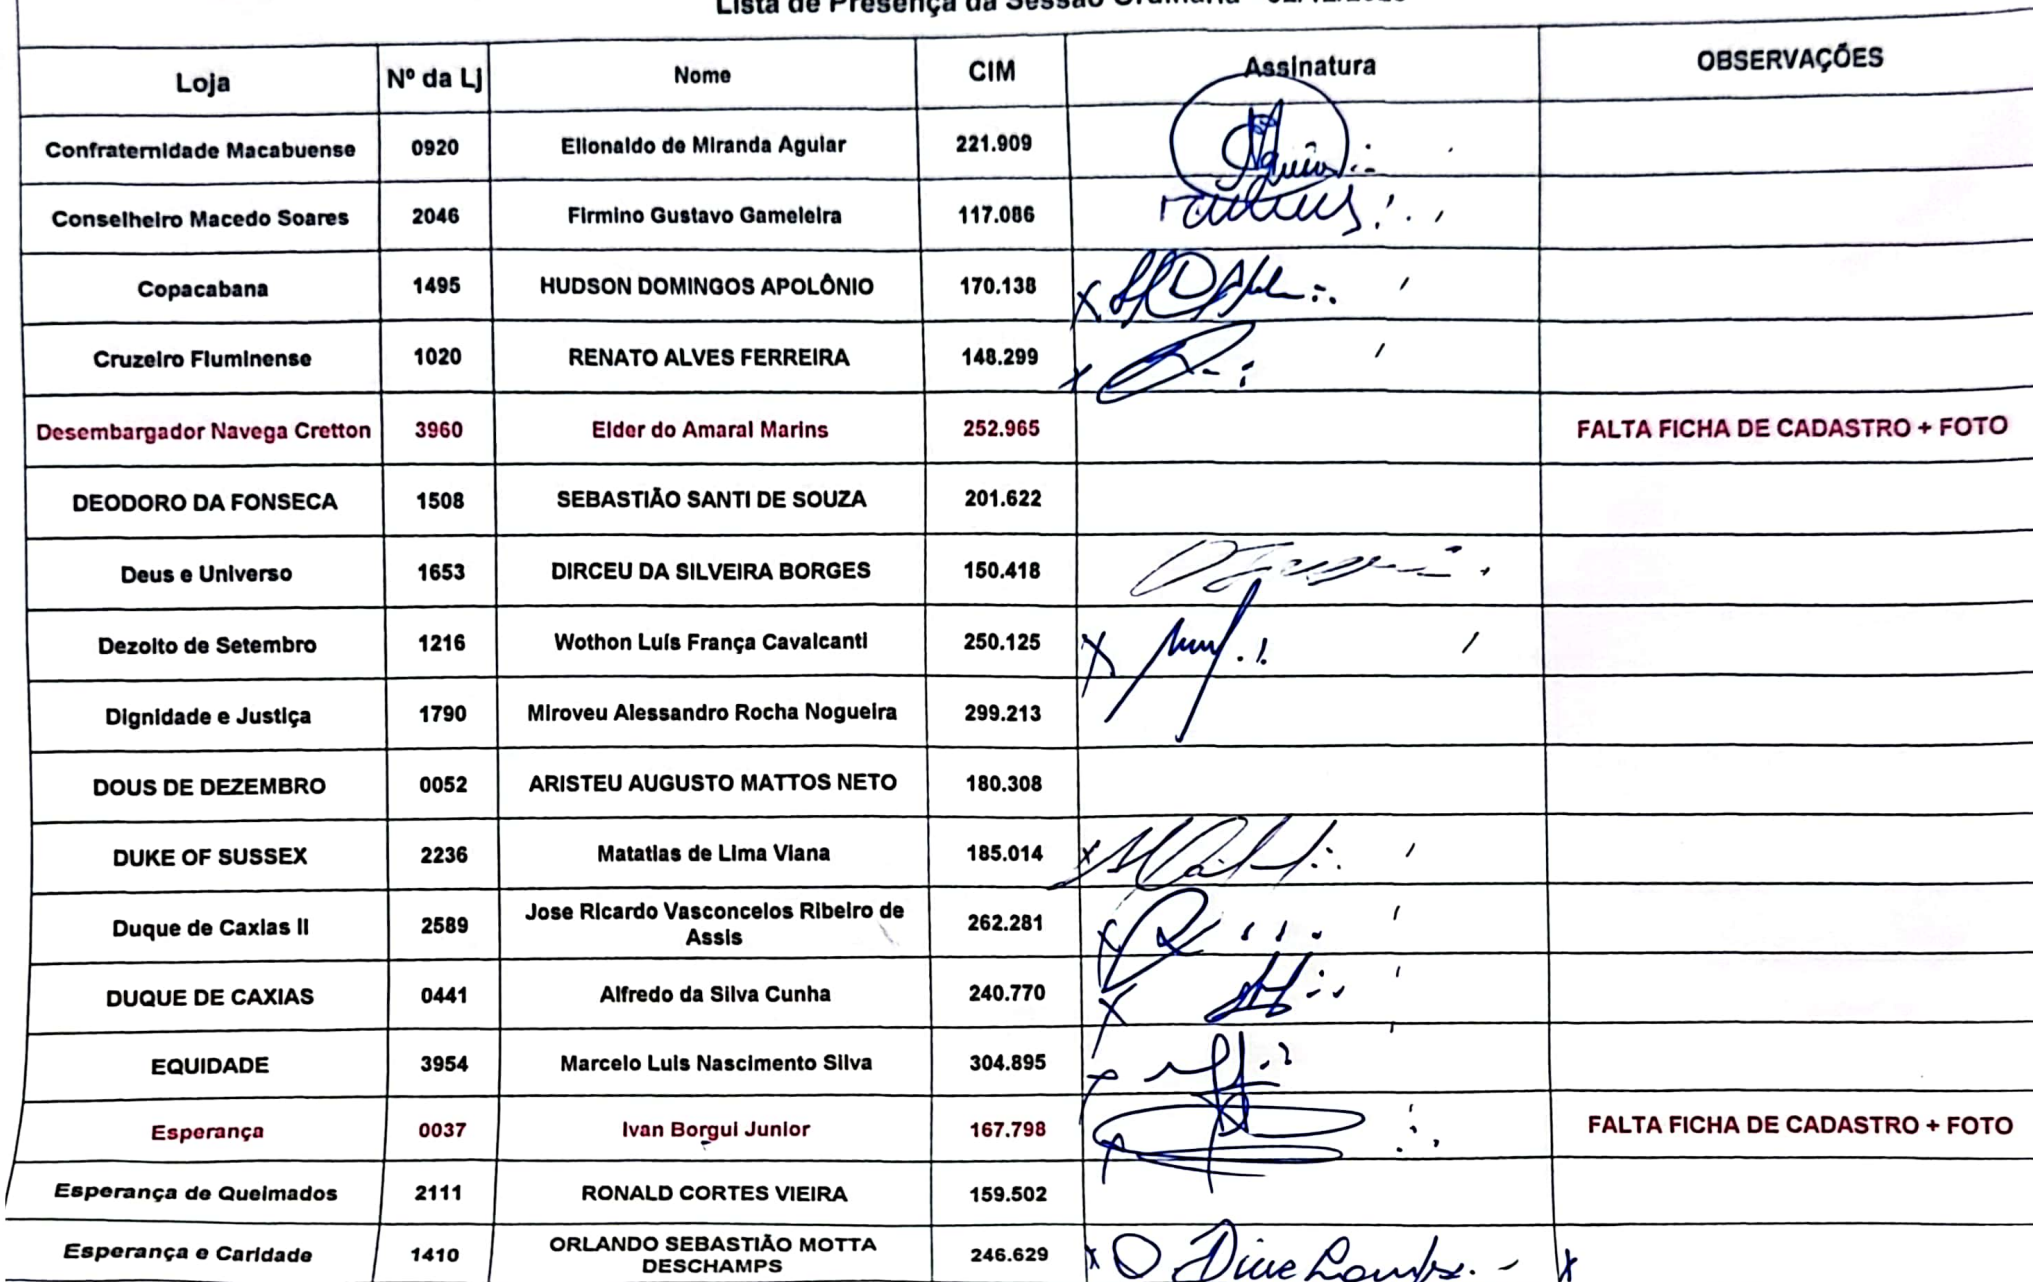 Lista de Presença da Sessão Ordinária
Loja Nº da Lj Nome CIM Assinatura OBSERVAÇÕES
Confraternidade Macabuense 0920 Elionaldo de Miranda Aguiar 221.909
Conselheiro Macedo Soares 2046 Firmino Gustavo Gameleira 117.086
Copacabana 1495 HUDSON DOMINGOS APOLÔNIO 170.138
Cruzeiro Fluminense 1020 RENATO ALVES FERREIRA 148.299
Desembargador Navega Cretton 3960 Elder do Amaral Marins 252.965 FALTA FICHA DE CADASTRO + FOTO
DEODORO DA FONSECA 1508 SEBASTIÃO SANTI DE SOUZA 201.622
Deus e Universo 1653 DIRCEU DA SILVEIRA BORGES 150.418
Dezoito de Setembro 1216 Wothon Luís França Cavalcanti 250.125
Dignidade e Justiça 1790 Miroveu Alessandro Rocha Nogueira 299.213
DOUS DE DEZEMBRO 0052 ARISTEU AUGUSTO MATTOS NETO 180.308
DUKE OF SUSSEX 2236 Matatias de Lima Viana 185.014
Duque de Caxias II 2589 Jose Ricardo Vasconcelos Ribeiro de
Assis 262.281
DUQUE DE CAXIAS 0441 Alfredo da Silva Cunha 240.770
EQUIDADE 3954 Marcelo Luis Nascimento Silva 304.895
Esperança 0037 Ivan Borgui Junior 167.798 FALTA FICHA DE CADASTRO + FOTO
Esperança de Queimados 2111 RONALD CORTES VIEIRA 159.502
Esperança e Caridade 1410 ORLANDO SEBASTIÃO MOTTA
DESCHAMPS 246.629